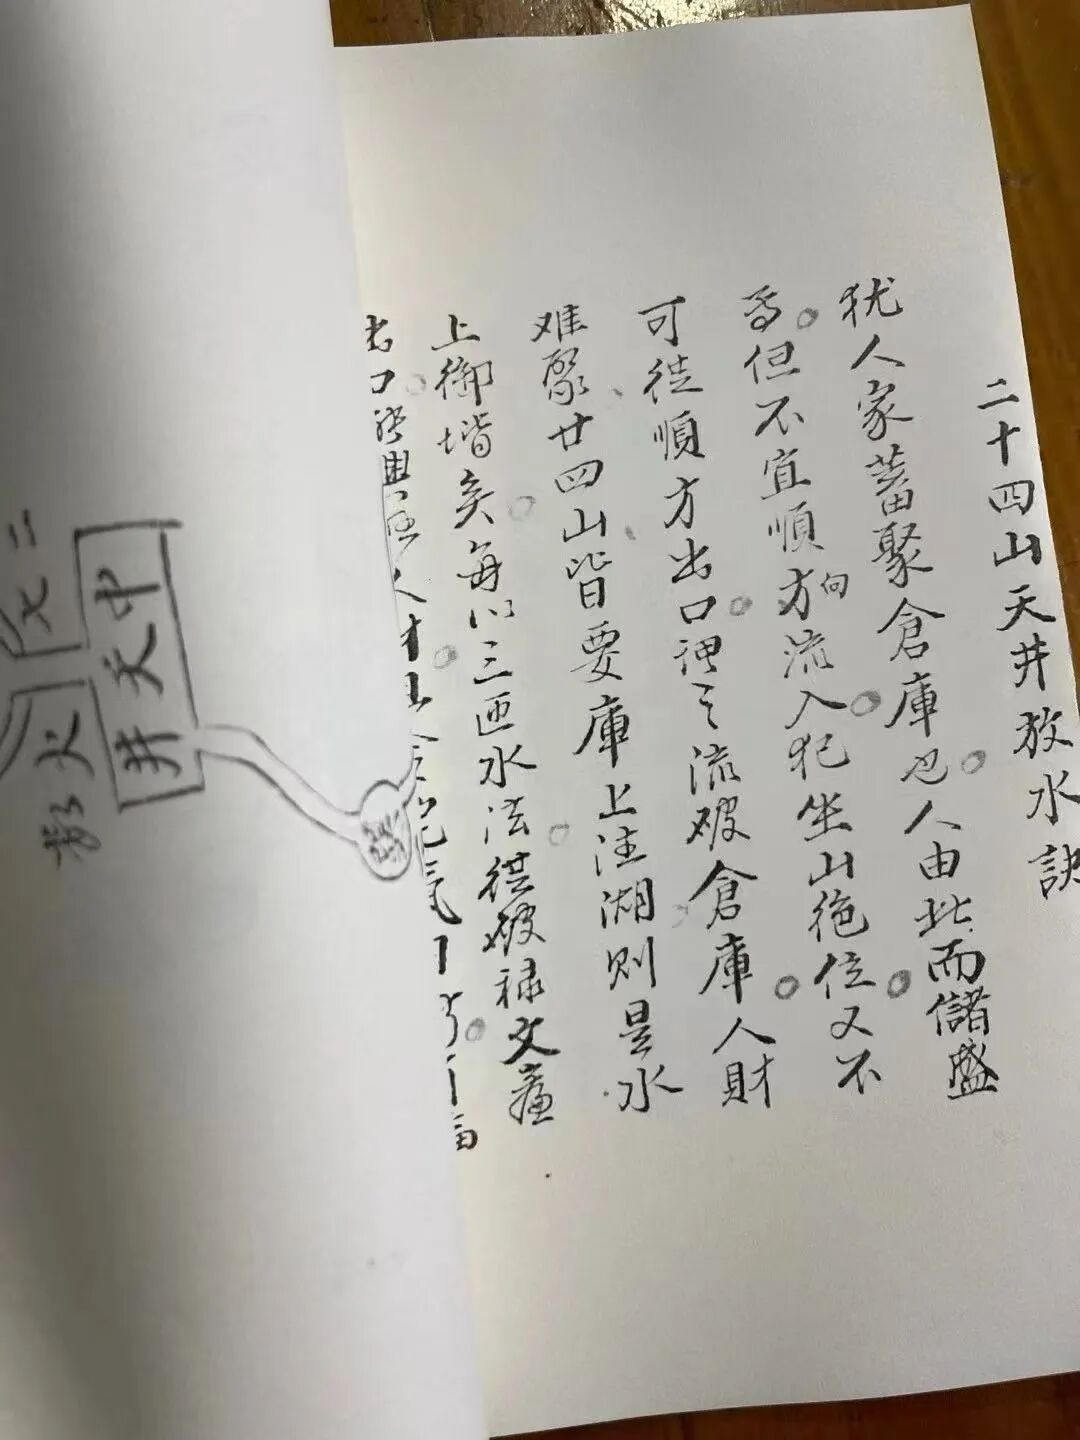 二十四山天井放水訣
犹人家蓄聚倉庫也人由此而儲盛
焉但不宜順方向流入犯坐山絶位又不
可徒順方出口謂之流破倉庫人財
难聚廿四山皆要庫上注湖則是水
上御堦矣每以三匝水法從破禄文廉
出口
人才
中天
井